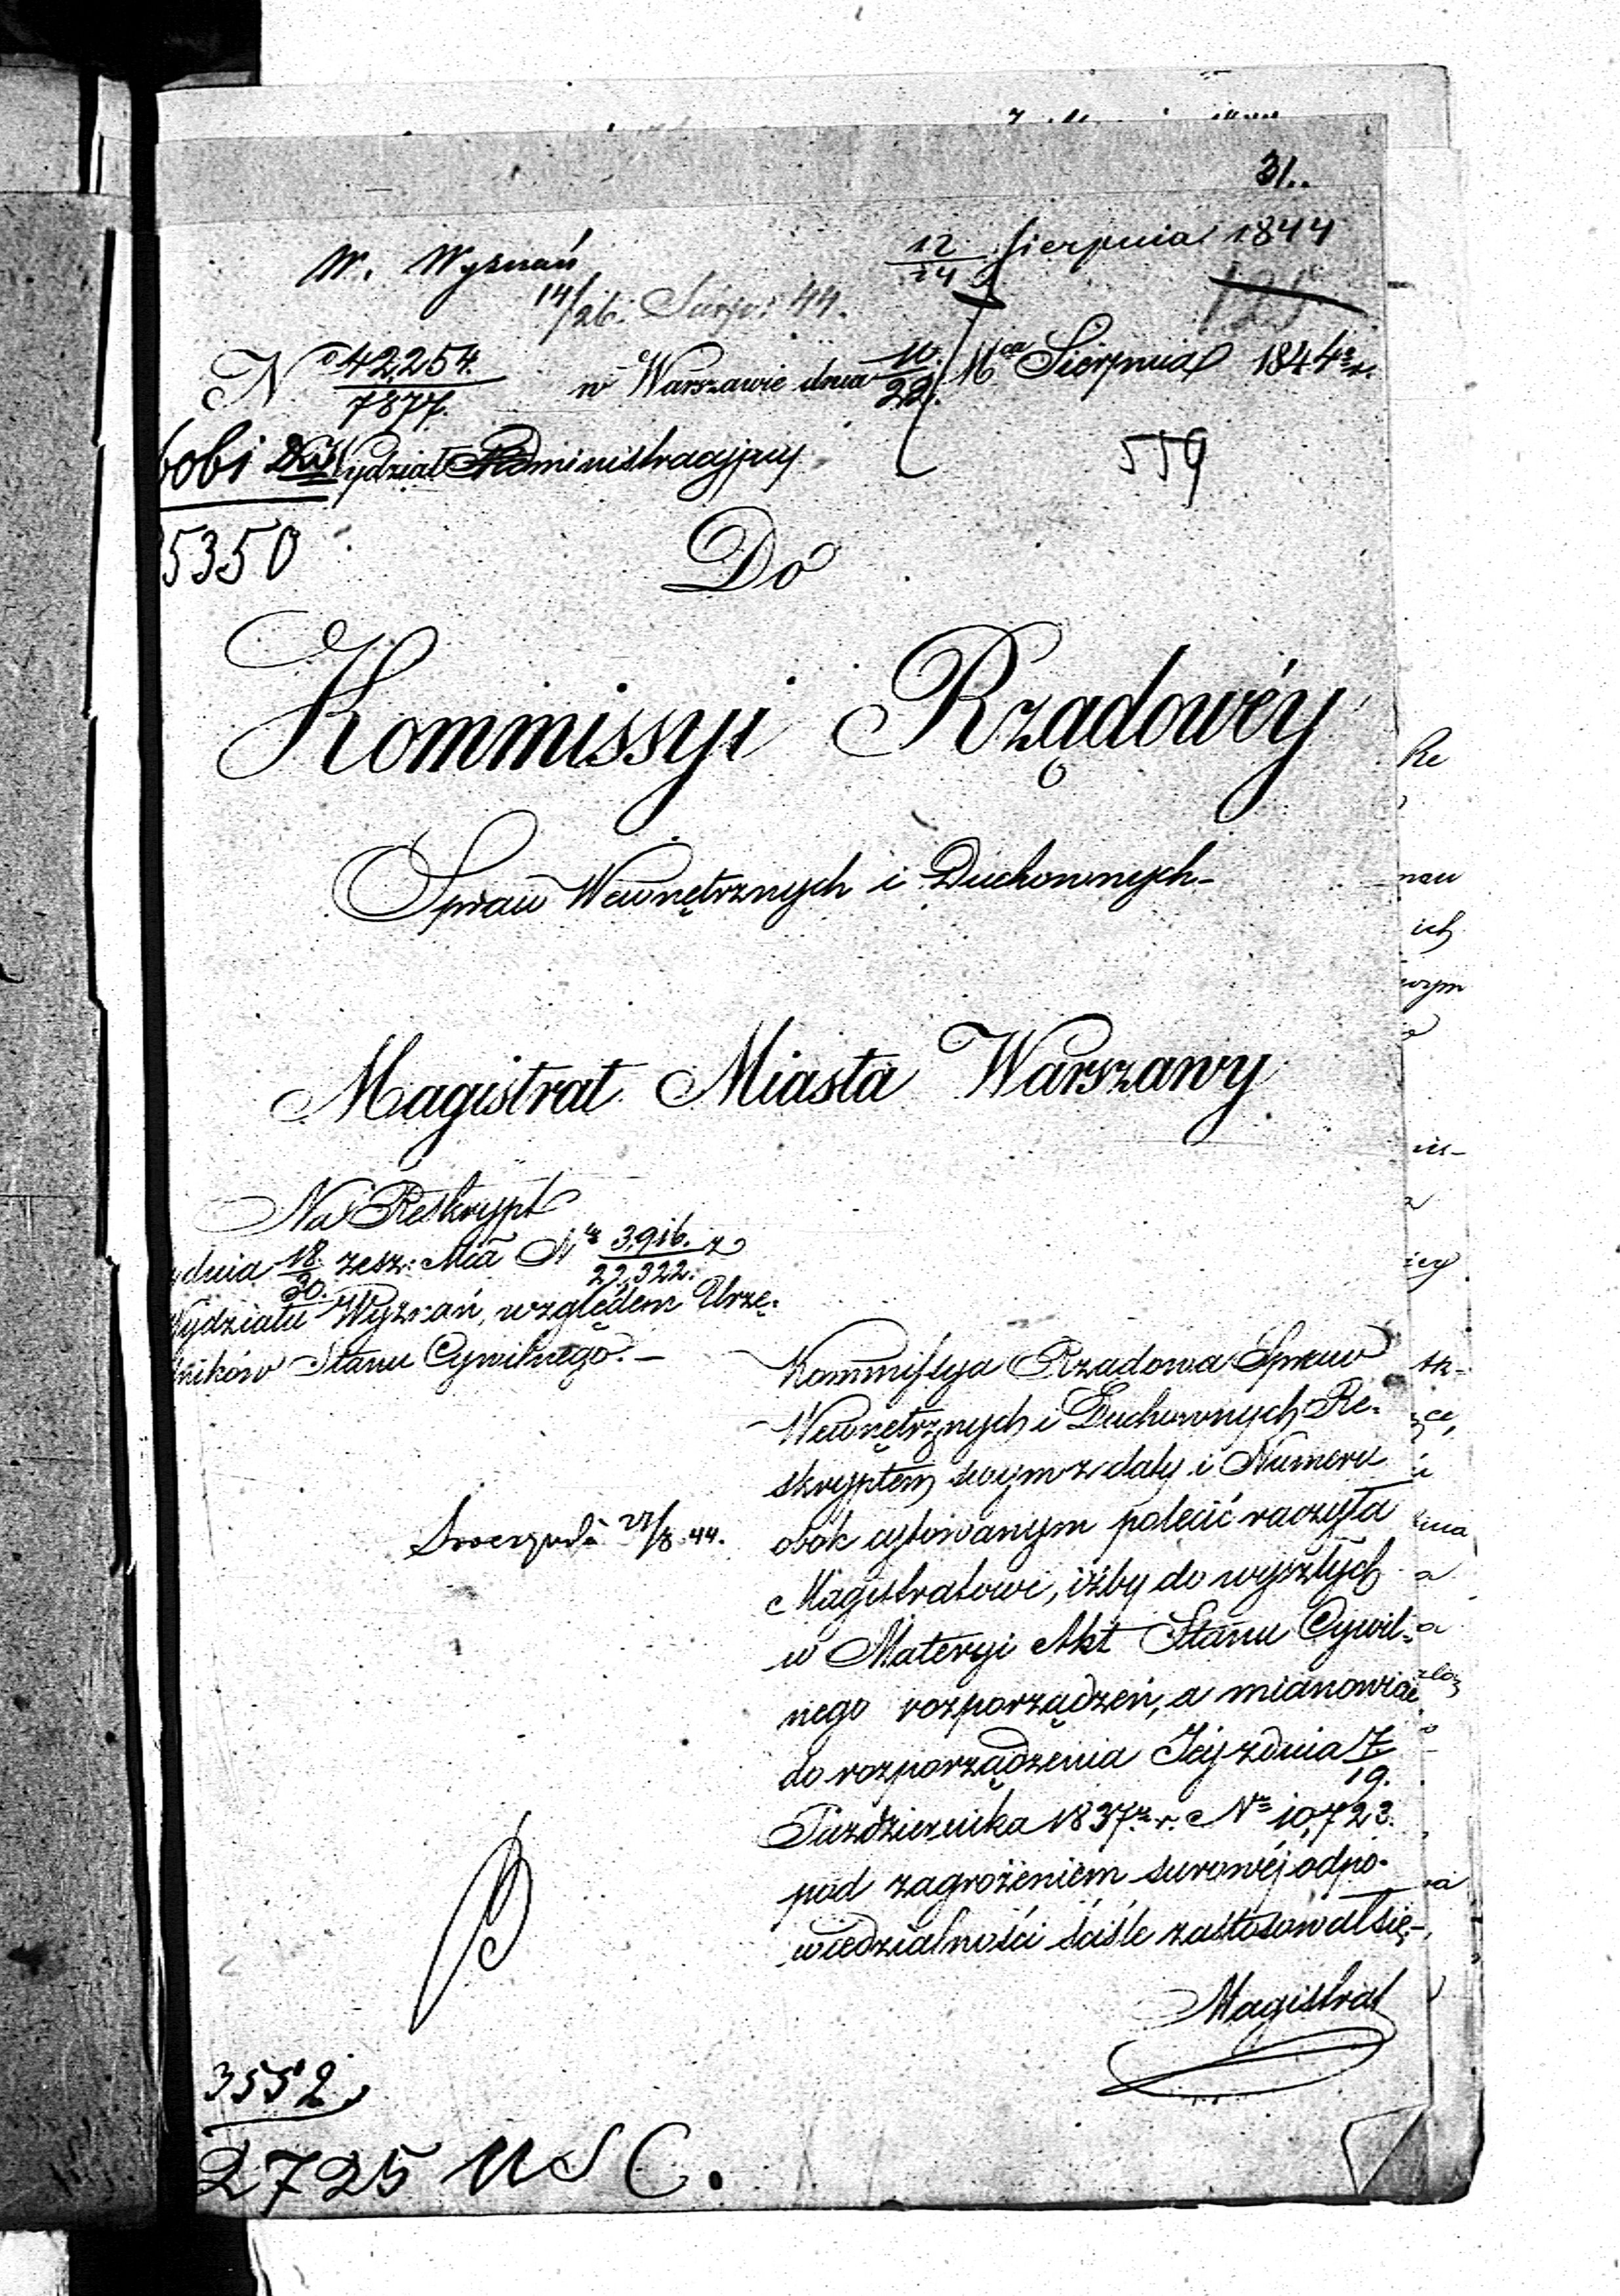 31.
W. Wyznań
12/24 Sierpnia 1844
14/26. Sierp: 44.
125
No 42,254./7877. w Warszawie dnia 10./22. Mca Sierpnia 1844 r.
Wydział Administracyjny
559
5350
Do
Kommissyi Rządowéy
Spraw Wewnętrznych i Duchownych
Magistrat Miasta Warszawy
Na Reskrypt
dnia 18./30. zesz: Mca Nr 3,916./22,322. z
Wydziału Wyznań, względem Urzę-
dników Stanu Cywilnego.
Kommissya Rządowa Spraw
Wewnętrznych i Duchownych Re-
skryptem swym z daty i Numeru
obok cytowanym polecić raczyła
Magistratowi, iżby do wyszłych
w Materyi Akt Stanu Cywil-
nego rozporządzeń, a mianowicie
do rozporządzenia Jéy z dnia 7/19.
Października 1837 r. Nr 10,723.
pod zagrożeniem surowéj odpo-
wiedzialności ściśle zastosował się,
27/8.44.
Magistrat
3552
2725 USC.